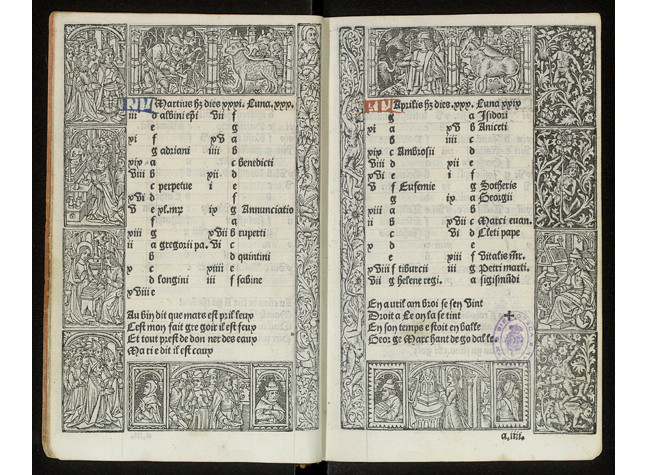 KL Martius hz dies xxxi. Luna. xxx.
iii d albini epi
e
xi f
g adriani
xix a
viii b
c perpetue
xvi d
v e xl. mrz
f
xiii g
ii a gregorii pa.
b
x c
d longini
xviii e
vii f
g
xv a
iiii b
c benedicti
xii d
i e
f
ix g Annunciatio
a
xvii b ruperti
vi c
d quintini
xiiii e
iii f sabine
Au bin dit que mars est pril leux
Cest mon fait gre goir il est feux
Et tout prest de don ner des eaux
Ma ri e dit il est caux
KL Aprilis hz dies. xxx. Luna xxix
g
xi a
b
xix c Ambrosii
viii d
xvi e
v f Eufemie
g
xiii a
ii b
c
x d
e
xviii f tiburcii
vii g helene regi.
a Isidori
xv b Aniceti
iiii c
d
xii e
i f
g Sotheris
ix a Georgii
b
xvii c Marci euan.
vi d Cleti pape
e
xiiii f Vitalis mr.
iii g Petri marti.
a sigismudi
En auril am broi se sen vint
Droit a Le on la se tint
En son temps estoit en balle
Geor ge Marchant de go dalle
a.iiii.